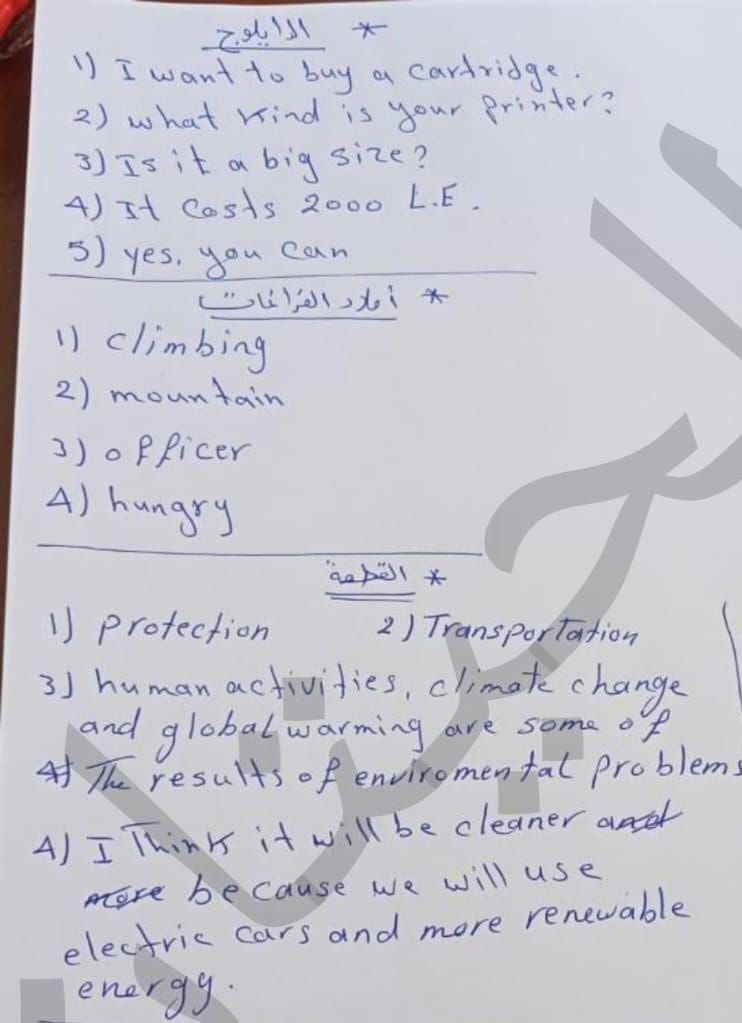 * الدايلوج
1) I want to buy a cartridge.
2) what kind is your printer?
3) Is it a big size?
4) It costs 2000 L.E.
5) yes, you can
* أملاد الفراغات
1) climbing
2) mountain
3) officer
4) hungry
* القطعة
1) protection 2) Transportation
3) human activities, climate change
and global warming are some of
The results of enviromental problems
4) I Think it will be cleaner and
more because we will use
electric cars and more renewable
energy.